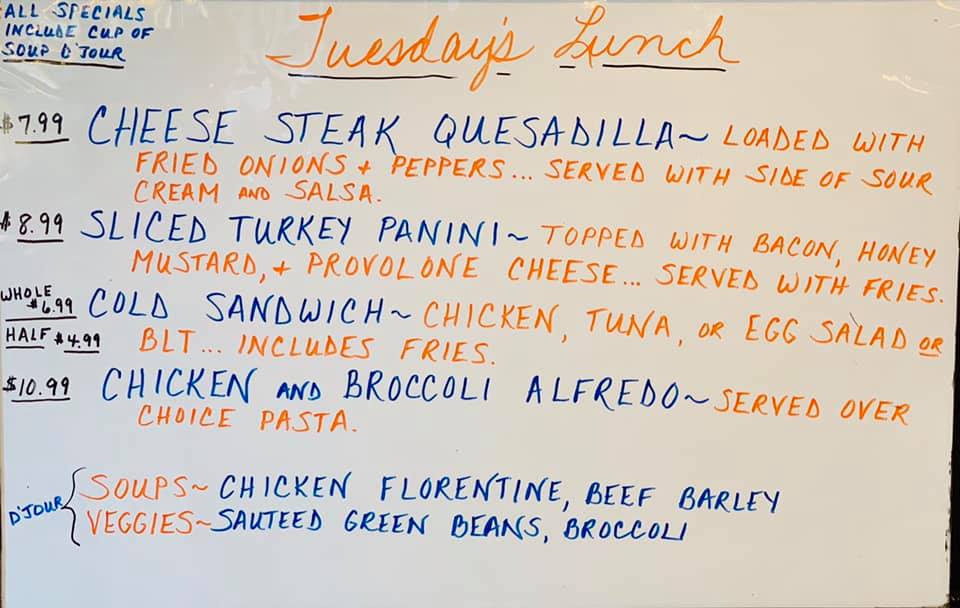 ALL SPECIALS
INCLUDE CUP OF
SOUP D'JOUR
Tuesday's Lunch
$7.99 CHEESE STEAK QUESADILLA~ LOADED WITH
FRIED ONIONS + PEPPERS... SERVED WITH SIDE OF SOUR
CREAM AND SALSA.
$8.99 SLICED TURKEY PANINI~ TOPPED WITH BACON, HONEY
MUSTARD, + PROVOLONE CHEESE... SERVED WITH FRIES.
WHOLE $6.99 COLD SANDWICH~ CHICKEN, TUNA, OR EGG SALAD OR
HALF $4.99 BLT... INCLUDES FRIES.
$10.99 CHICKEN AND BROCCOLI ALFREDO~ SERVED OVER
CHOICE PASTA.
D'JOUR
SOUPS~ CHICKEN FLORENTINE, BEEF BARLEY
VEGGIES~ SAUTEED GREEN BEANS, BROCCOLI